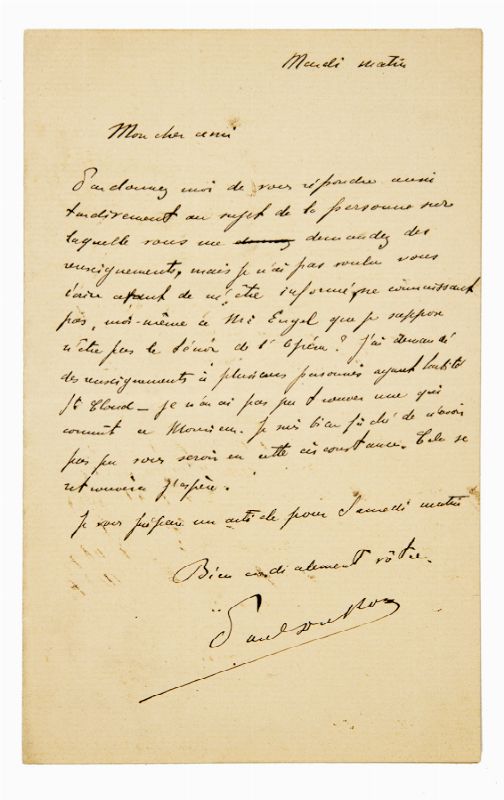 Mardi matin
Mon cher ami
Pardonnez moi de vous répondre aussi
tardivement au sujet de la personne sur
laquelle vous me demandez des
renseignements, mais je n'ai pas voulu vous
écrire avant de m'être informé, ne connaissant
pas, moi-même ce Mr Engel que je suppose
n'être pas le ténor de l'Opéra? J'ai demandé
des renseignements à plusieurs personnes ayant habité
St Cloud — je n'en ai pas pu trouver une qui
connût ce Monsieur. Je suis bien fâché de n'avoir
pas pu vous servir en cette circonstance. Cela se
retrouvera j'espère.
Je vous prépare un article pour Samedi matin
Bien cordialement vôtre.